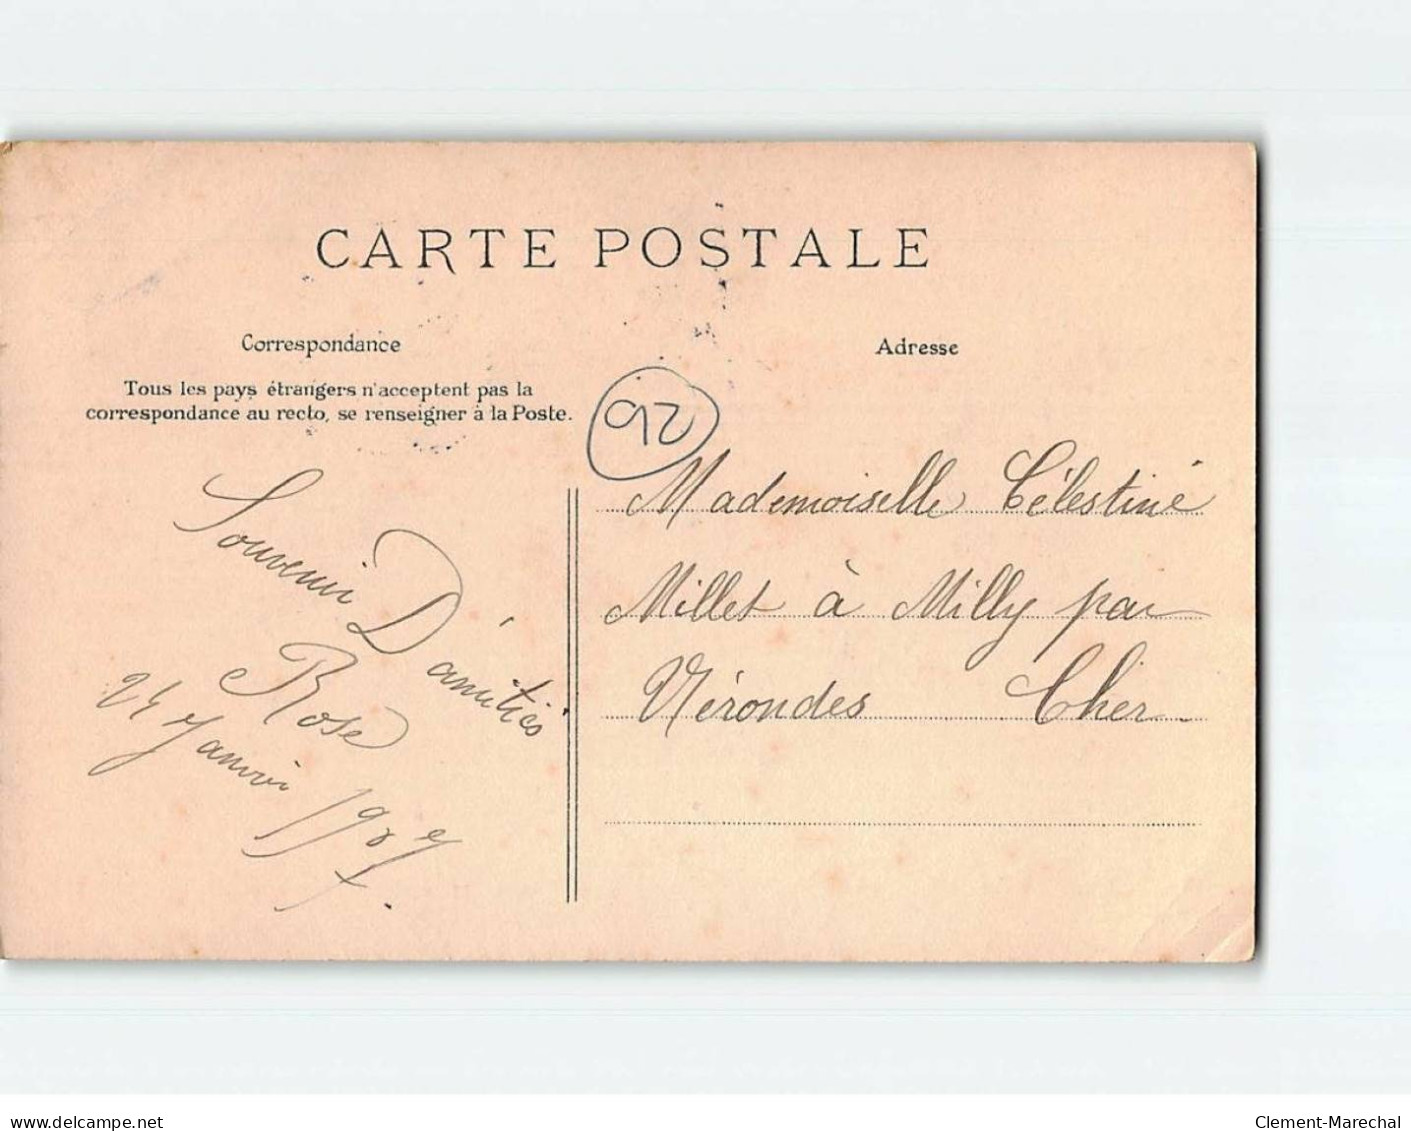 CARTE POSTALE
Correspondance
Adresse
Tous les pays étrangers n'acceptent pas la
correspondance au recto, se renseigner à la Poste.
92
Souvenir D'amitiés
Rose
24 Janvier 1907.
Mademoiselle Célestine
Millet à Milly par
Vérondes Cher
delcampe.net
Clement-Marechal